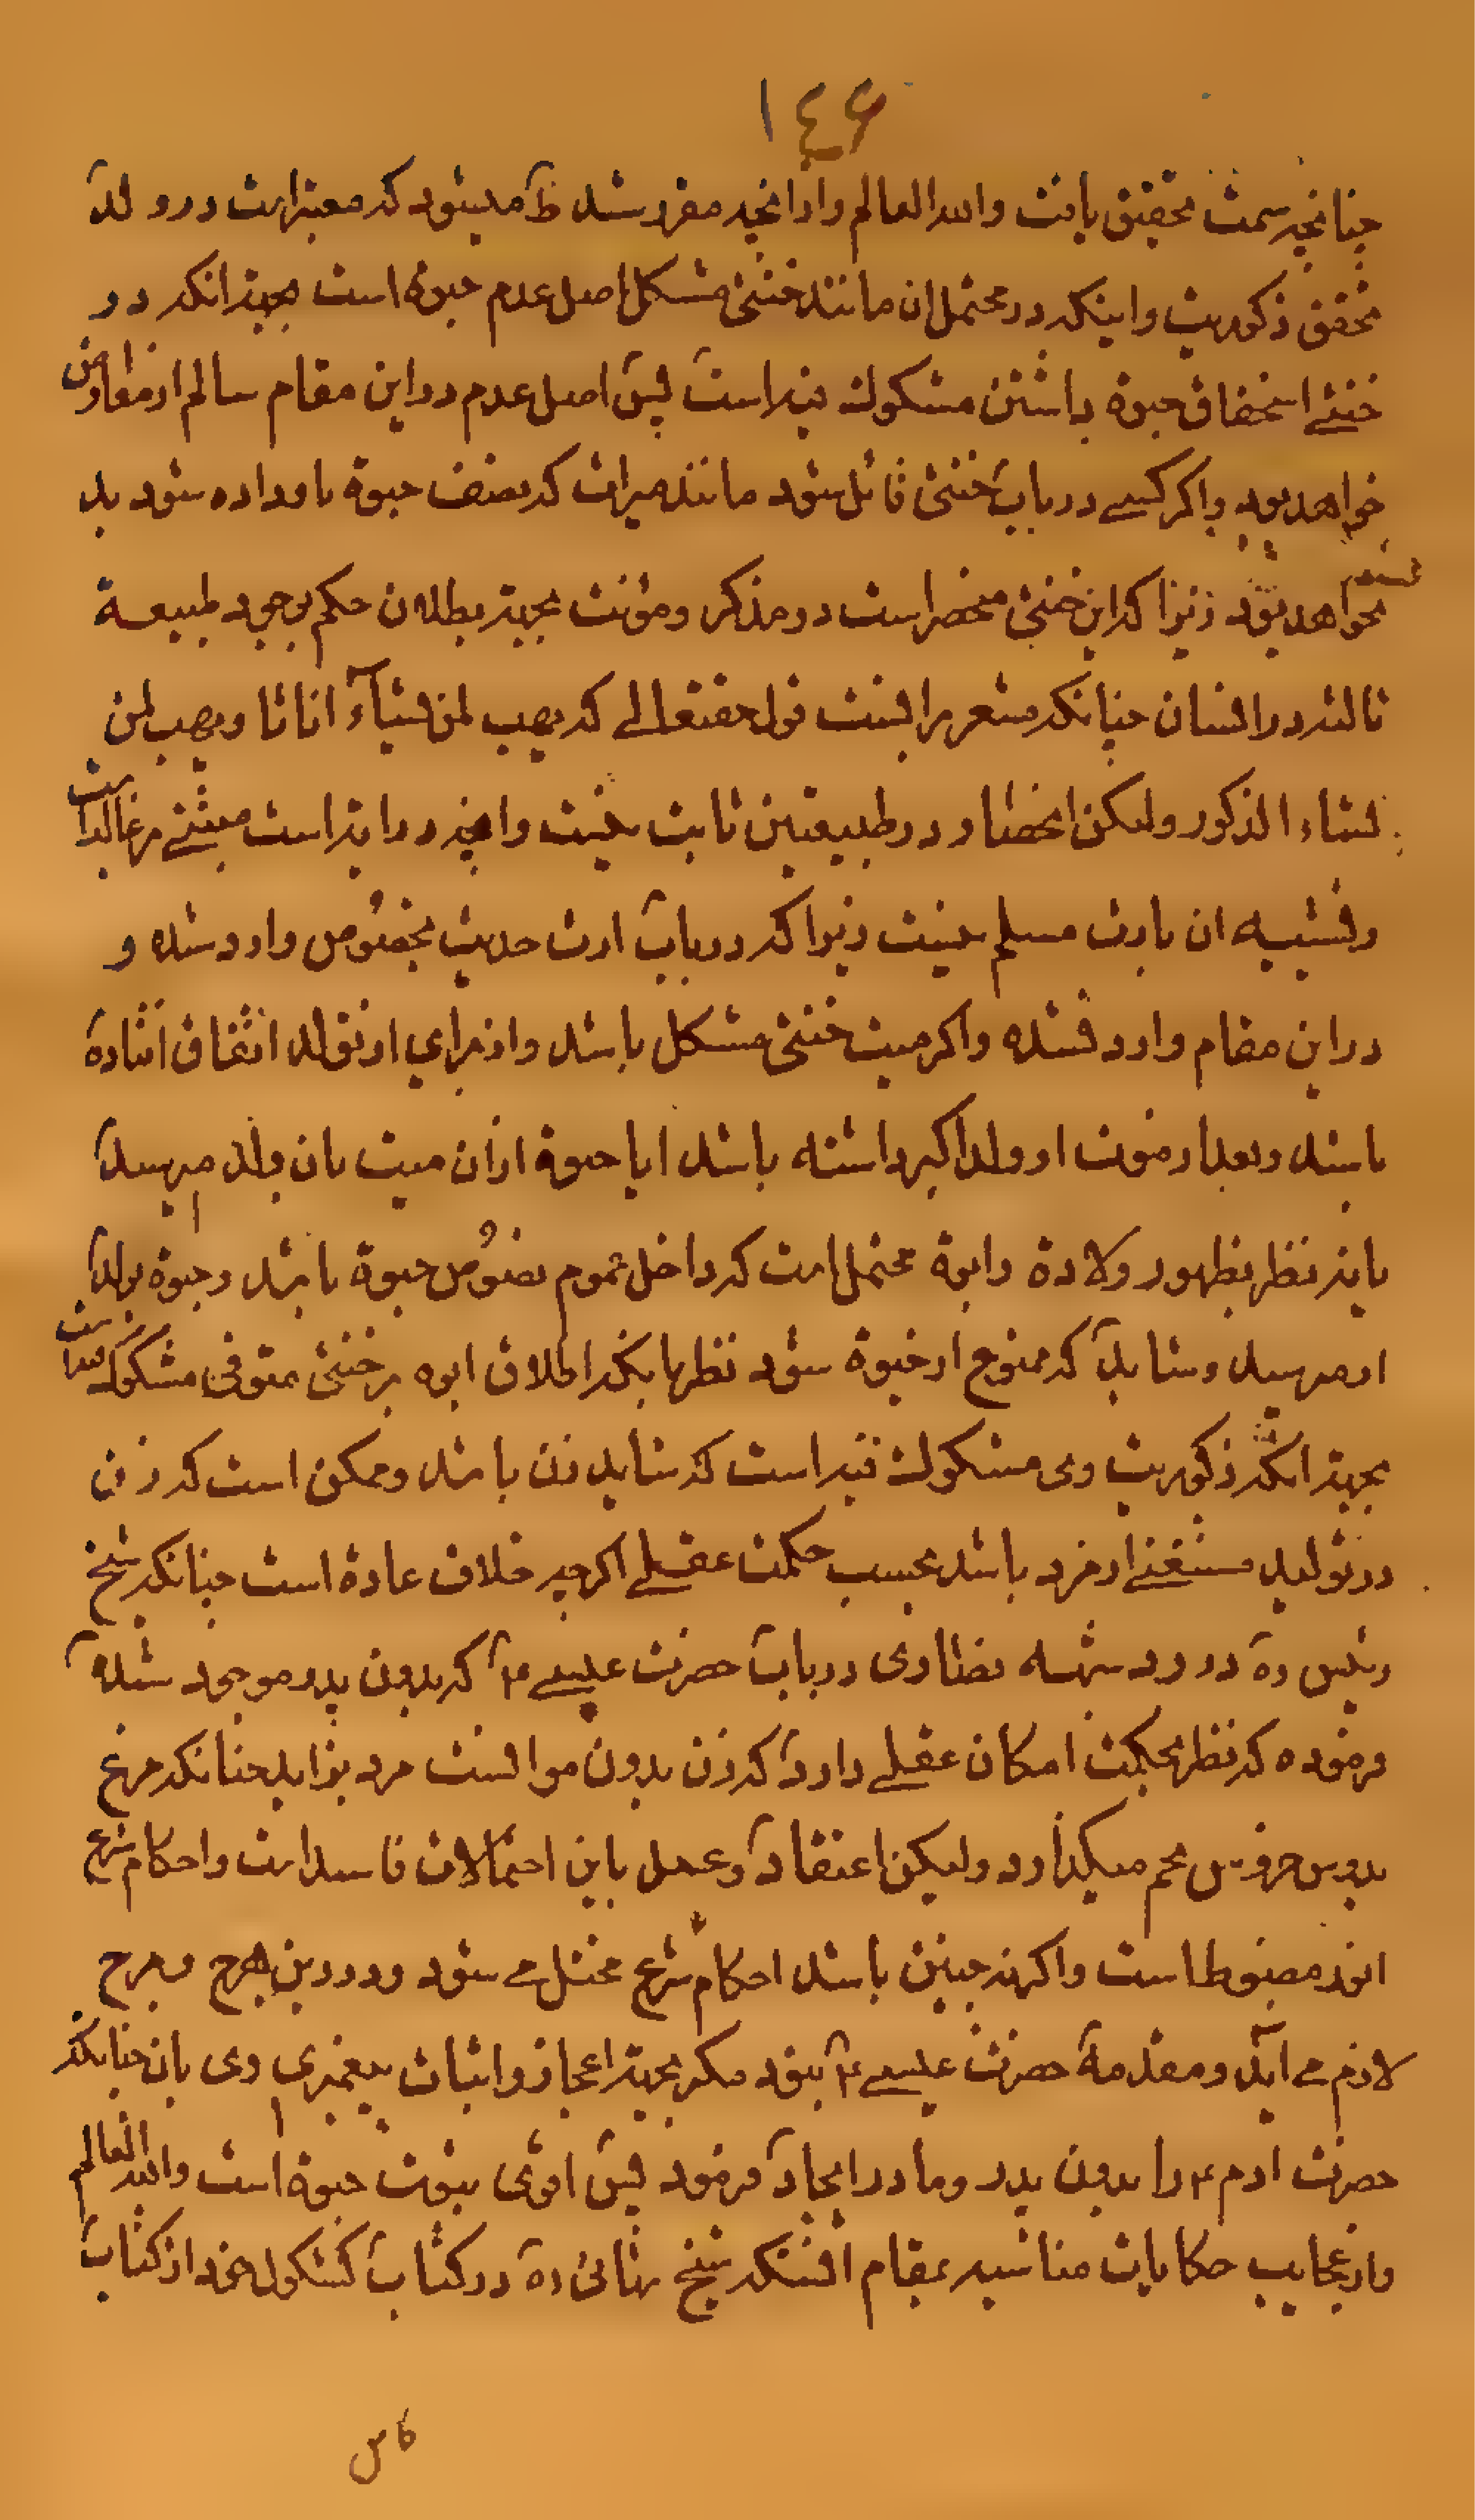 ١٤۶
چنانچه سمت تحقیق یافت والله العالم واز انچه مقرر شد ظ میشود که معتبر است در ولد
تحقق ذکوریت واینکه در محتمل ان مانند خنثی مشکل اصل عدم حبوه است بجهة انکه در
خنثی استحقاق حبوة داشتن مشکوک فیه است پس اصل عدم در این مقام سالم از معارض
خواهد بود واکر کسی در باب خنثی قائل شود مانند میراث که نصف حبوة باو داده شود بد
نخواهد بود زیرا که این خنثی منحصر است در مذکر ومؤنث بجهة بطلان حکم بوجود طبیعة
ثالثه در انسان چنانکه مشعر بر انست قول حقتعالی که یهب لمن یشآء اناثا ویهب لمن
یشاء الذکور ولیکن انحصار در طبیعتین ثابت نیست وانچه در ایة است مبتنی بر غالب است
وتشبیه ان بارث مسلم نیست زیرا که در باب ارث حدیث بخصوص وارد شده و
در این مقام وارد نشده واکر میت خنثی مشکل باشد واز برای او تولد اتفاق افتاده
باشد وبعد از موت او ولد اکبر داشته باشد ایا حبوة از ان میت بان ولد میرسد
یا نه نظر بظهور ولادة وابوة محتمل است که داخل عموم نصوص حبوة باشد وحبوة بولد
او میرسد وشاید که ممنوع از حبوة شود نظر بانکه اطلاق ابوه بر خنثی متوفی مشکوک فیه است
بجهة انکه ذکوریت وی مشکوک فیه است که شاید زن باشد وممکن است که زن
در تولید مستغنی از مرد باشد بحسب حکمت عقلی اکرچه خلاف عادة است چنانکه شیخ
رئیس ره در رد شبهه نصاری در باب حضرت عیسی ع که بدون پدر موجود شده
فرموده که نظر بحکمت امکان عقلی دارد که زن بدون موانست مرد بزاید چنانکه مرغ
بدون خروس تخم میکذارد ولیکن اعتقاد وعمل باین احتمالات فاسد است واحکام شرع
انور مضبوط است واکر نه چنین باشد احکام شرع مختل می شود ودر دین هرج ومرج
لازم می اید ومقدمه حضرت عیسی ع نبود مکر بجهة اعجاز واثبات پیغمبری وی بان چنانکه
حضرت ادم ع را بدون پدر ومادر ایجاد فرمود پس اقوی ثبوت حبوة است والله العالم
واز عجایب حکایات مناسبه بمقام انستکه شیخ بهائی ره در کتاب کشکول خود از کتاب
کامل